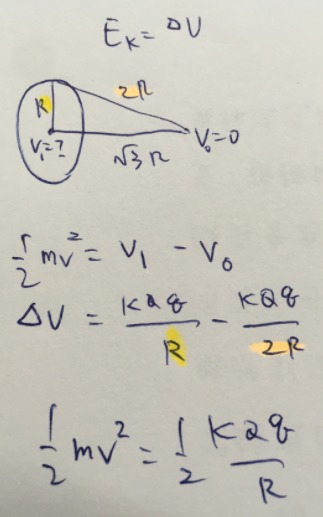 E_K = ΔV
R
2R
V₁=?
√3 R
V₀=0
1/2 mv² = V₁ - V₀
ΔV = KQq/R - KQq/2R
1/2 mv² = 1/2 KQq/R